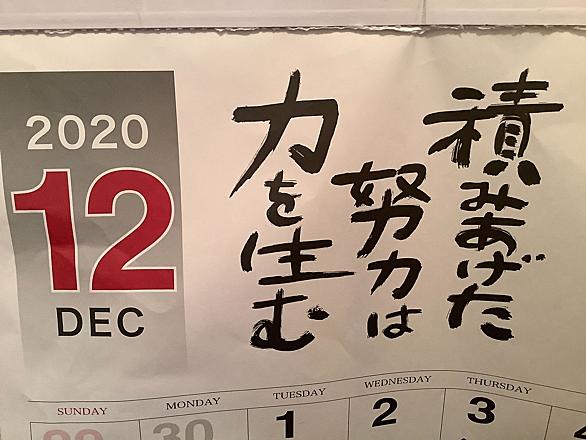 2020
12
DEC
積みあげた
努力は
力を生む
SUNDAY MONDAY TUESDAY WEDNESDAY THURSDAY
29 30 1 2 3